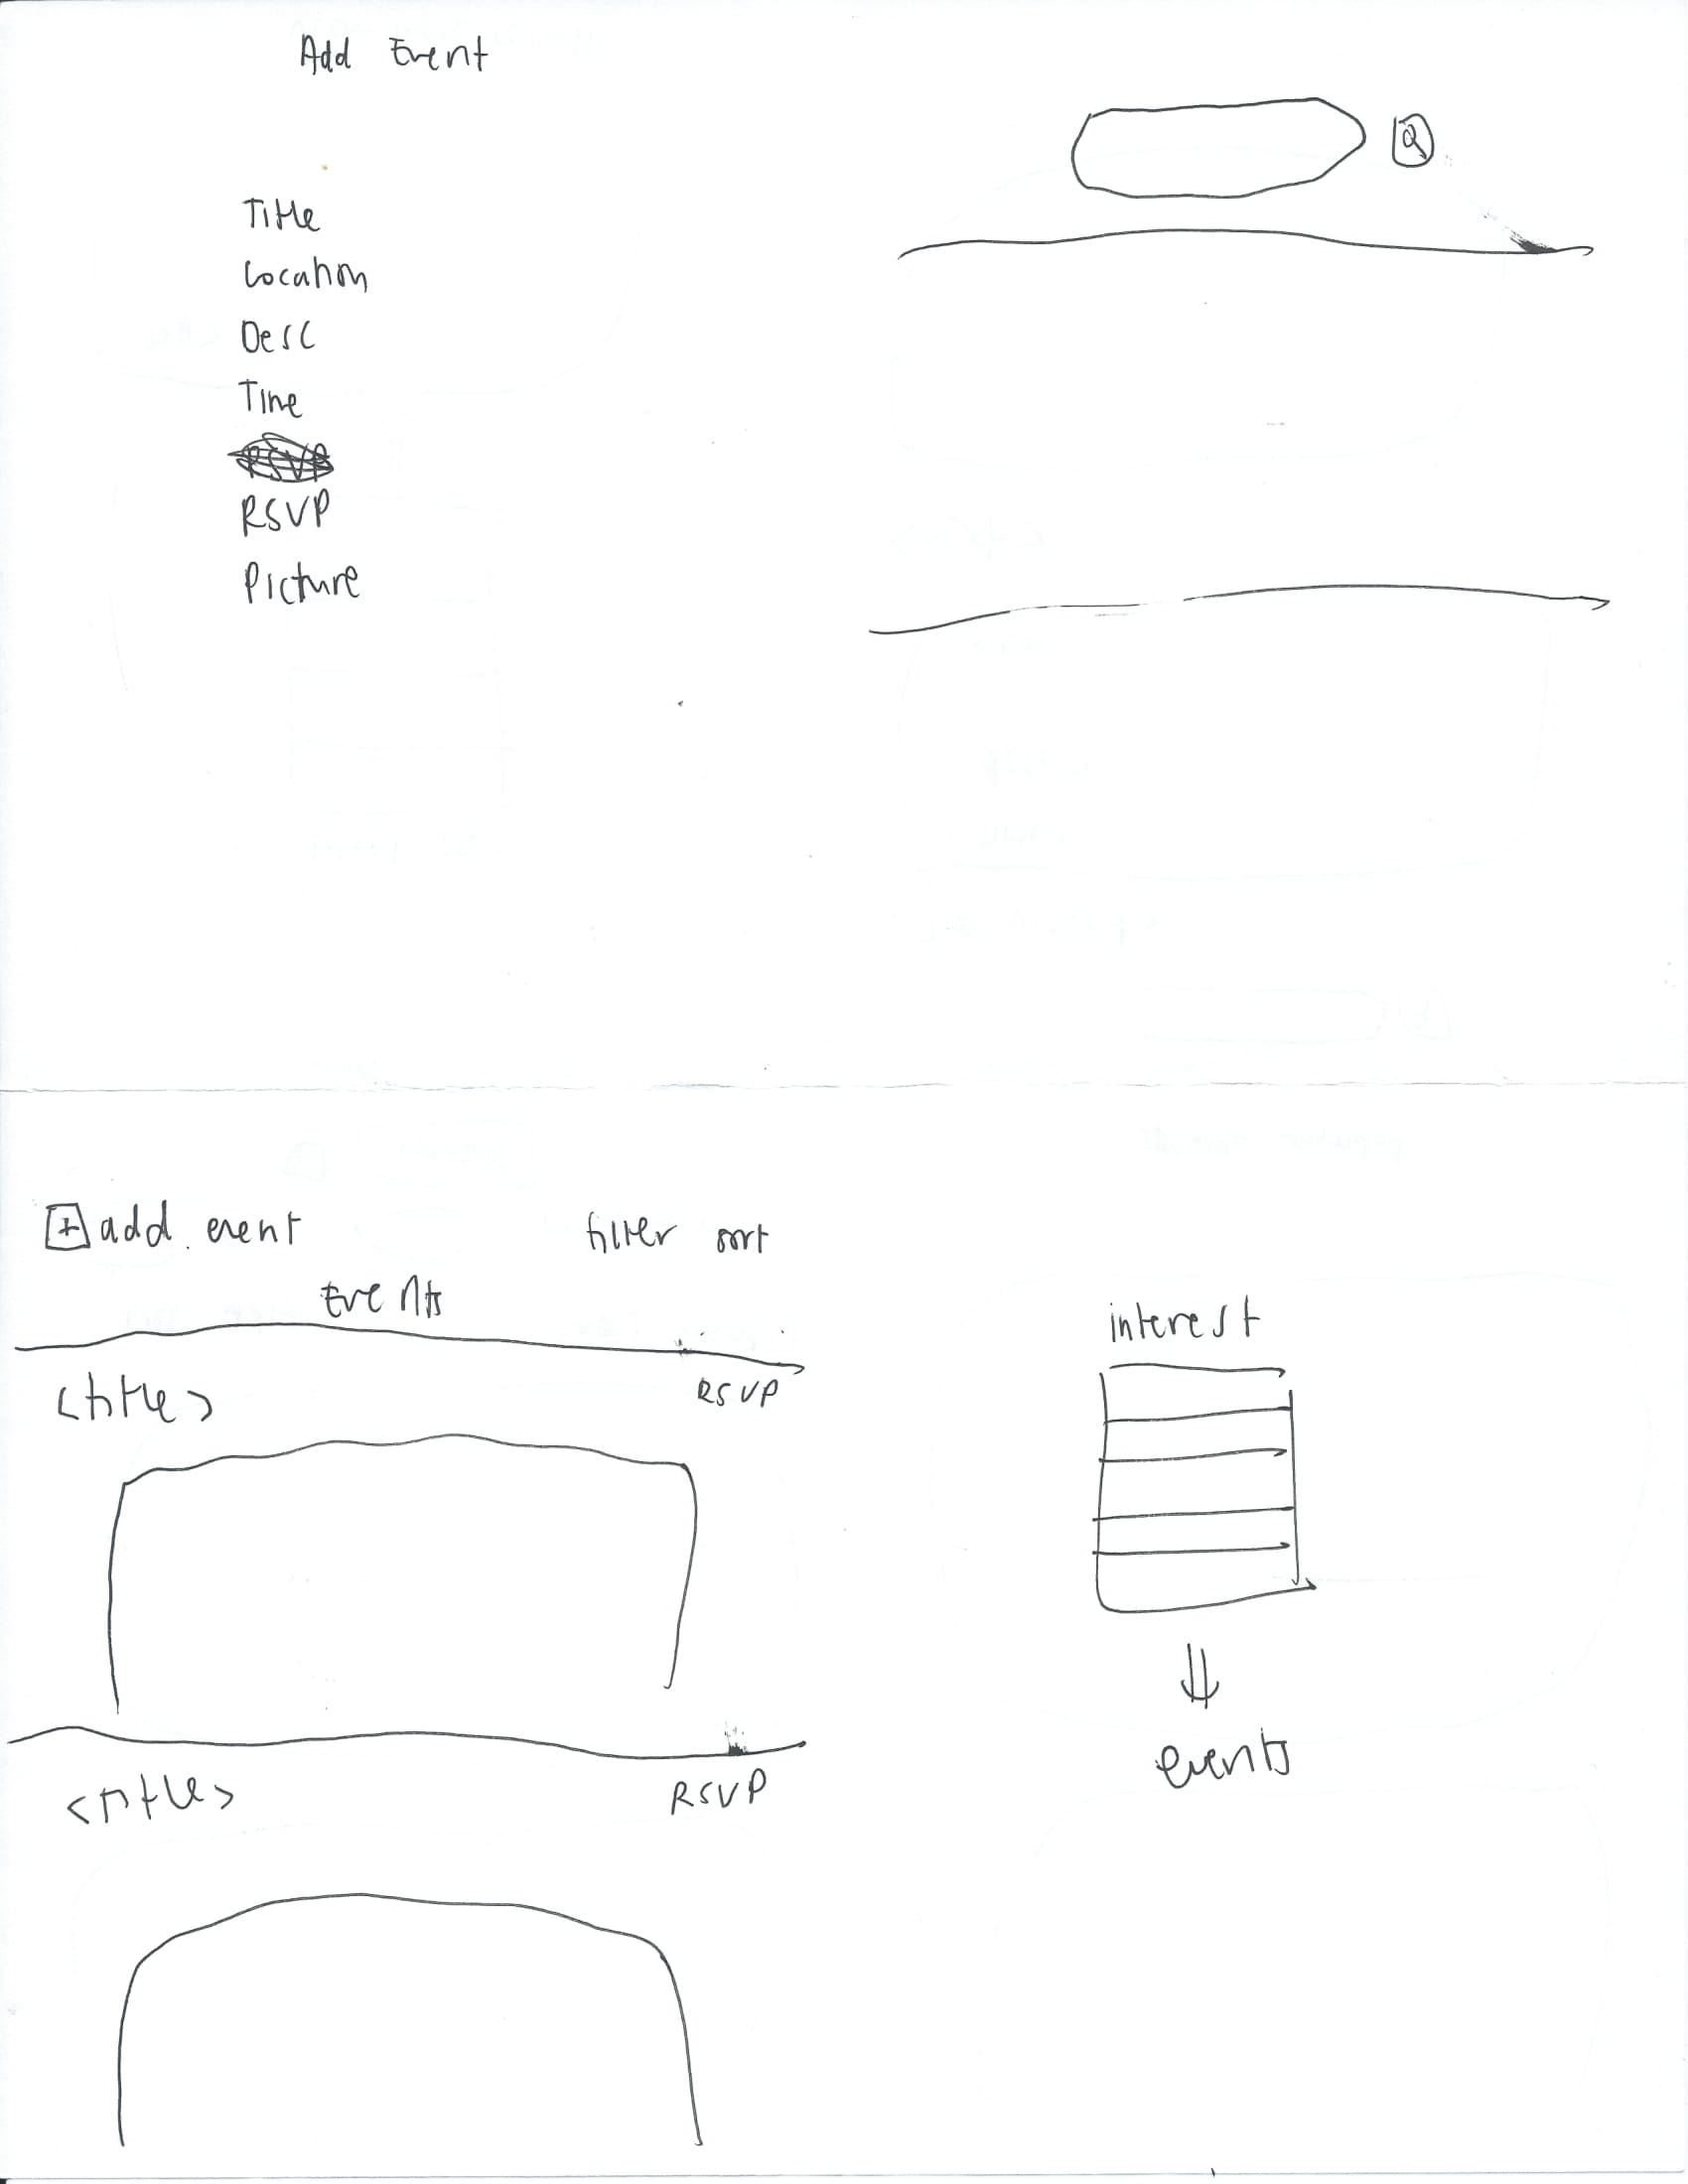 Add Event
Title
Location
Desc
Time
RSVP
Picture
add event
filter sort
Events
<title>
RSVP
<title>
RSVP
interest
events